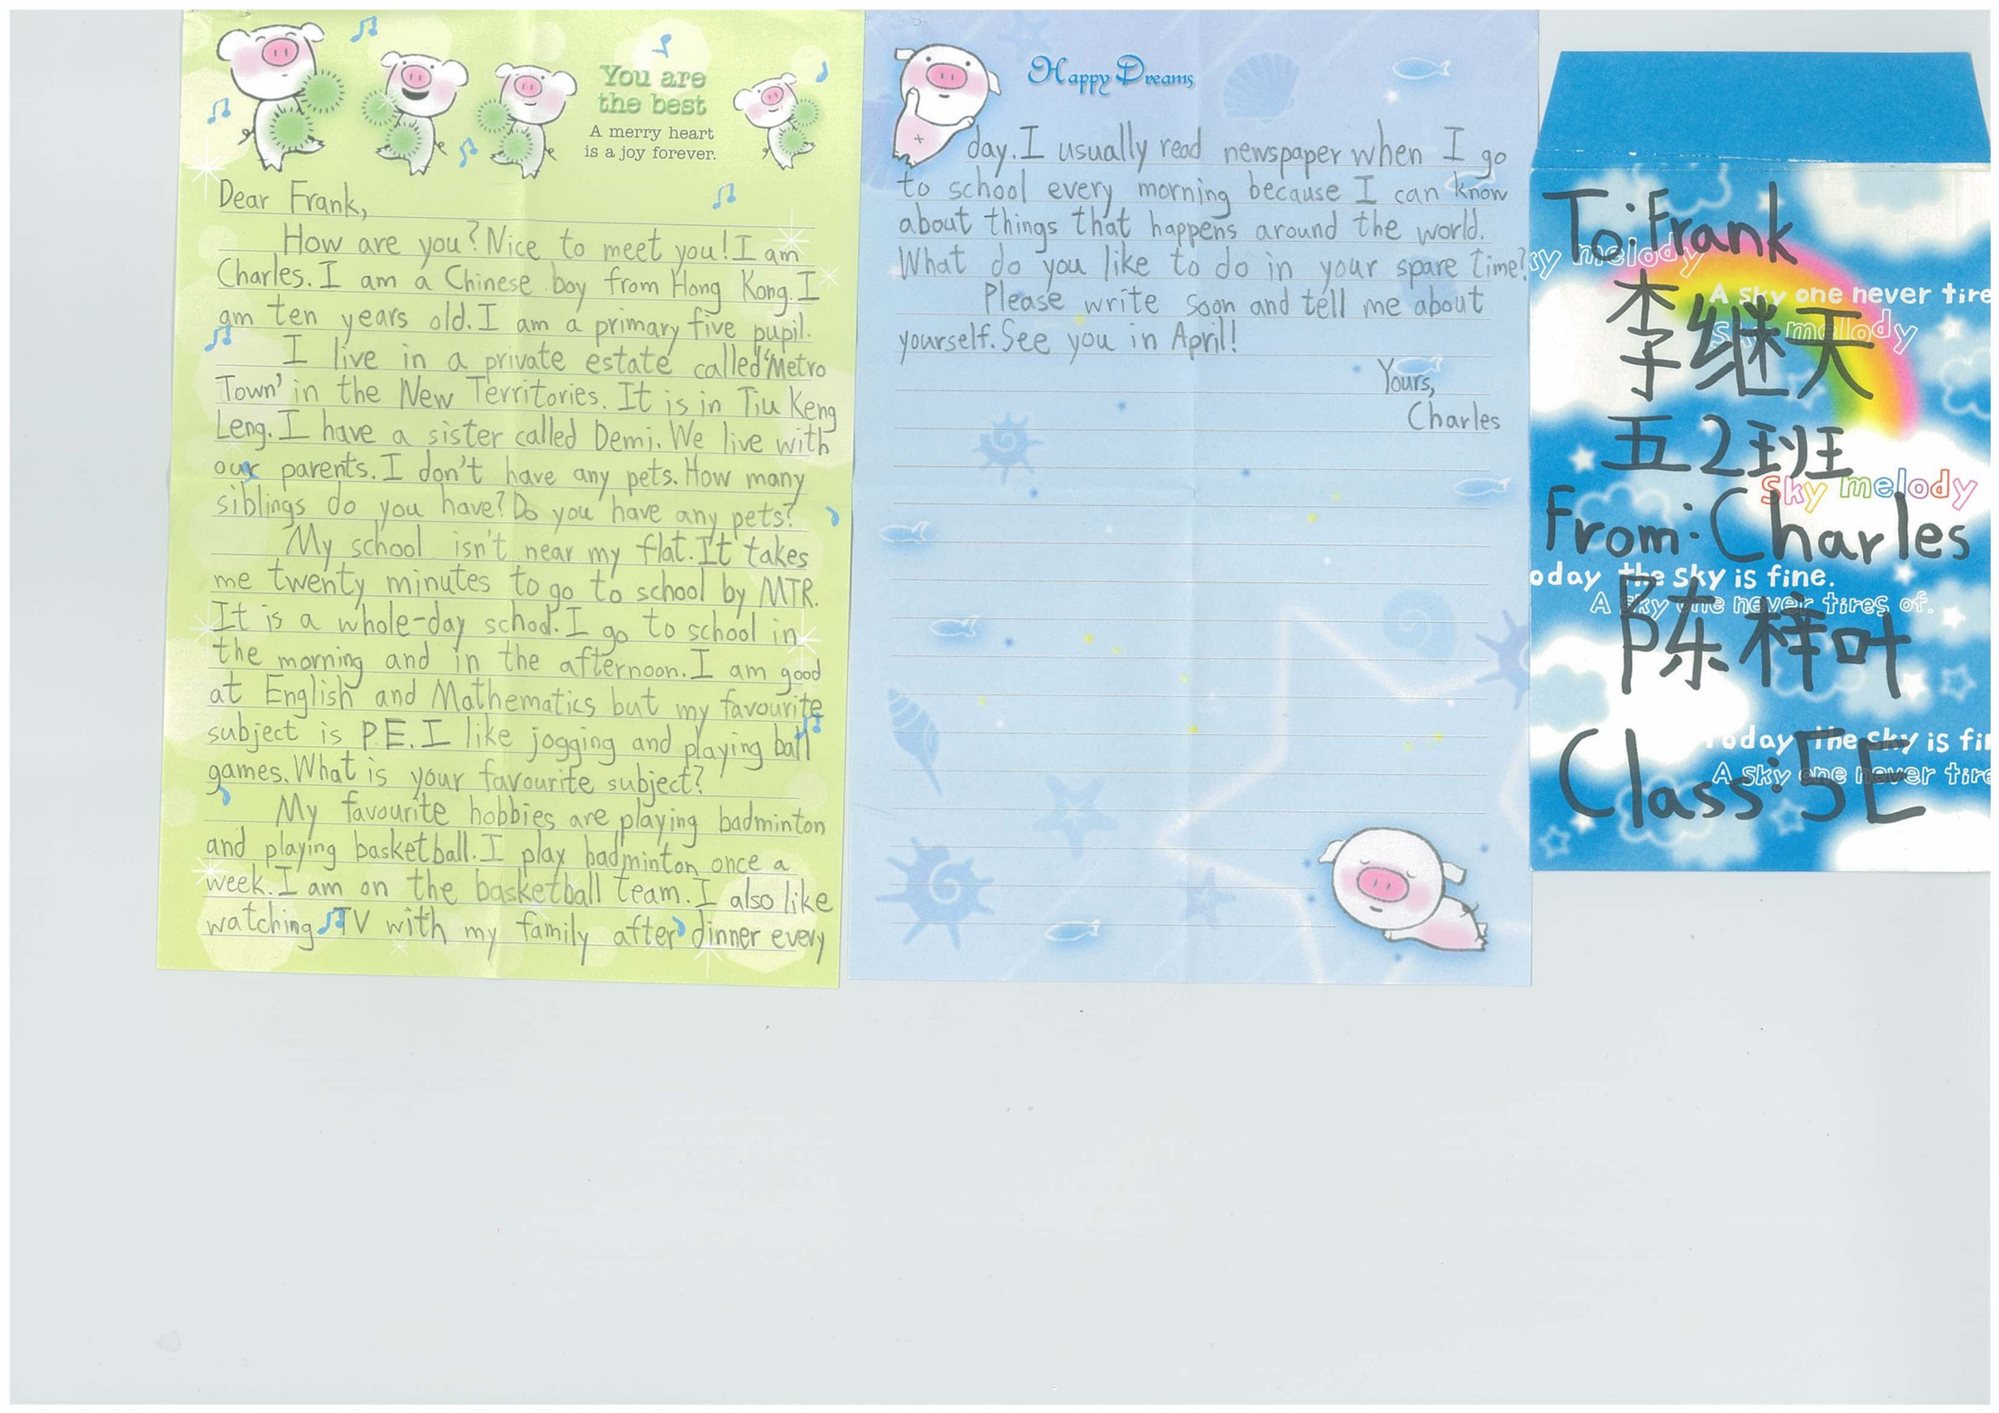 You are
the best
A merry heart
is a joy forever.
Dear Frank,
How are you? Nice to meet you! I am
Charles. I am a Chinese boy from Hong Kong. I
am ten years old. I am a primary five pupil.
I live in a private estate called 'Metro
Town' in the New Territories. It is in Tiu Keng
Leng. I have a sister called Demi. We live with
our parents. I don't have any pets. How many
siblings do you have? Do you have any pets?
My school isn't near my flat. It takes
me twenty minutes to go to school by MTR.
It is a whole-day school. I go to school in
the morning and in the afternoon. I am good
at English and Mathematics but my favourite
subject is P.E. I like jogging and playing ball
games. What is your favourite subject?
My favourite hobbies are playing badminton
and playing basketball. I play badminton once a
week. I am on the basketball team. I also like
watching TV with my family after dinner every
Happy Dreams
day. I usually read newspaper when I go
to school every morning because I can know
about things that happens around the world.
What do you like to do in your spare time?
Please write soon and tell me about
yourself. See you in April!
Yours,
Charles
To: Frank
sky melody
A sky one never tire
李继天
sky melody
五2班
sky melody
From: Charles
oday, the sky is fine.
A sky one never tires of.
陈梓叶
Today, the sky is fi
Class: 5E
A sky one never tire